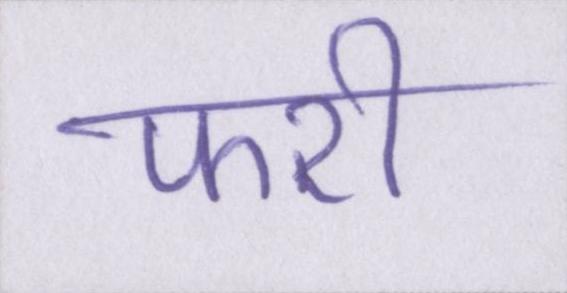 फरी